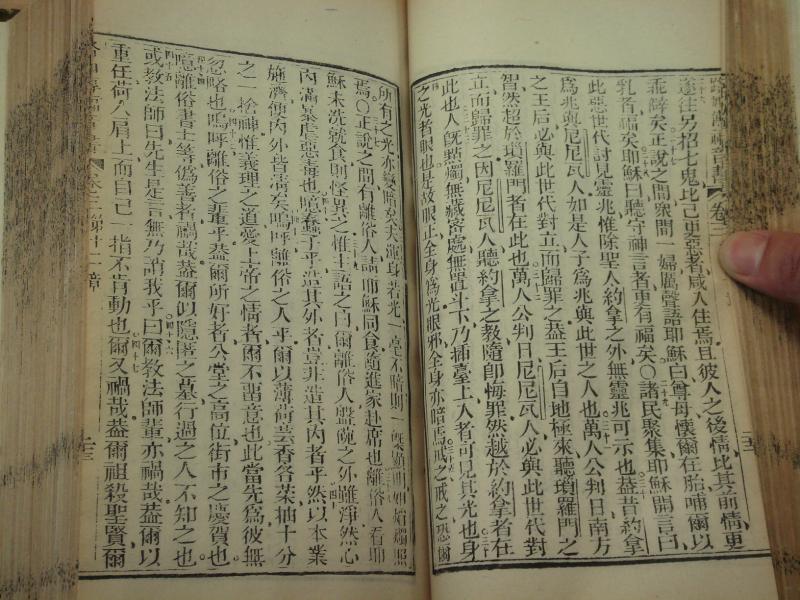 遂往另招七鬼比己更惡者咸入住焉且彼人之後情比其前情更
乖謬矣正說之間衆間一婦厲聲語耶穌曰尊母懷爾在胎哺爾以
乳者福矣耶穌曰聽守神言者更有福矣○諸民聚集耶穌開言曰
此惡世代討見靈兆惟除聖人約拿之外無靈兆可示也蓋昔約拿
爲兆與尼尼瓦人如是人子爲兆與此世之人也萬人公判日南方
之王后必與此世代對立而歸罪之蓋王后自地極來聽瑣羅門之
智然超於瑣羅門者在此也萬人公判日尼尼瓦人必與此世代對
立而歸罪之因尼尼瓦人聽約拿之教隨卽悔罪然越於約拿者在
此也人旣點燭無藏密處無置斗下乃插臺上入者可見其光也身
之光者眼也是故眼正全身爲光眼邪全身亦暗焉戒之戒之恐爾
所有之光亦變暗矣夫渾身若光一毫不暗則一概顯明如始燭照
焉○正說之間有離俗人請耶穌同食隨進家赴席也離俗人看耶
穌未洗就食則怪異之惟主語之曰爾離俗人盤碗之外雖淨然心
內滿暴虐惡毒也噫蠢乎造其外者豈非造其內者乎然以本業
施濟便內外皆潔矣嗚呼離俗之人乎爾以薄荷芸香各菜抽十分
之一捨輸惟義理之道愛上帝之情者爾不留意也此當先爲彼無
忽略也嗚呼離俗之輩乎蓋爾所好者公堂之高位街市之慶賀也
噫離俗書士等僞善者禍哉蓋爾似隱匿之墓行過之人不知之也
或教法師曰先生是言無乃誚我乎曰爾教法師輩亦禍哉蓋爾以
重任荷人肩上而自己一指不肯動也爾又禍哉蓋爾祖殺聖賢爾